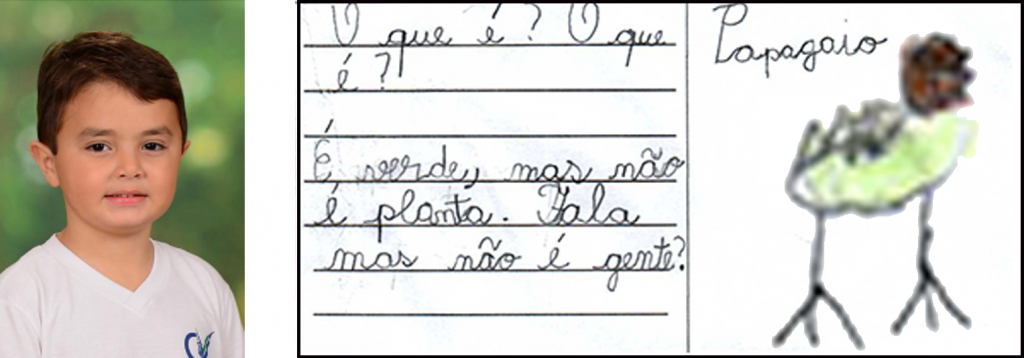 O que é? O que
é?
É verde, mas não
é planta. Fala
mas não é gente?
Papagaio